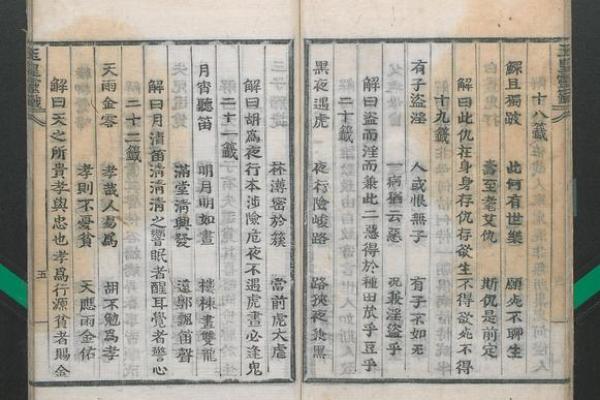 十八籤
鰥且獨跛 此何有世樂 願死不聊生
壽至老艾仇 斯仇是前定
解曰此仇在身身存仇存欲生不得欲死不得
十九籤
有子盜淫 人或恨無子 有子不如无
一病猶云惡 况兼淫盜乎
解曰盜而淫而兼此二惡得於種田於乎豆乎
二十籤
黑夜遇虎 夜行險峻路 路狹夜集黑
林薄密於簇 當前虎大虐
解曰胡爲夜行本涉險危夜不遇虎晝必逢鬼
二十一籤
月宵聽笛 明月明如晝 樓棟畫雙龍
滿堂清興發 遠郭飄笛聲
解曰月清笛清清清之響眠者醒耳覺者警心
二十二籤
天雨金零 孝哉人易爲 胡不勉爲孝
孝則不憂貧 天應雨金佑
解曰天之所貴孝與忠也孝爲行源貧者賜金
五